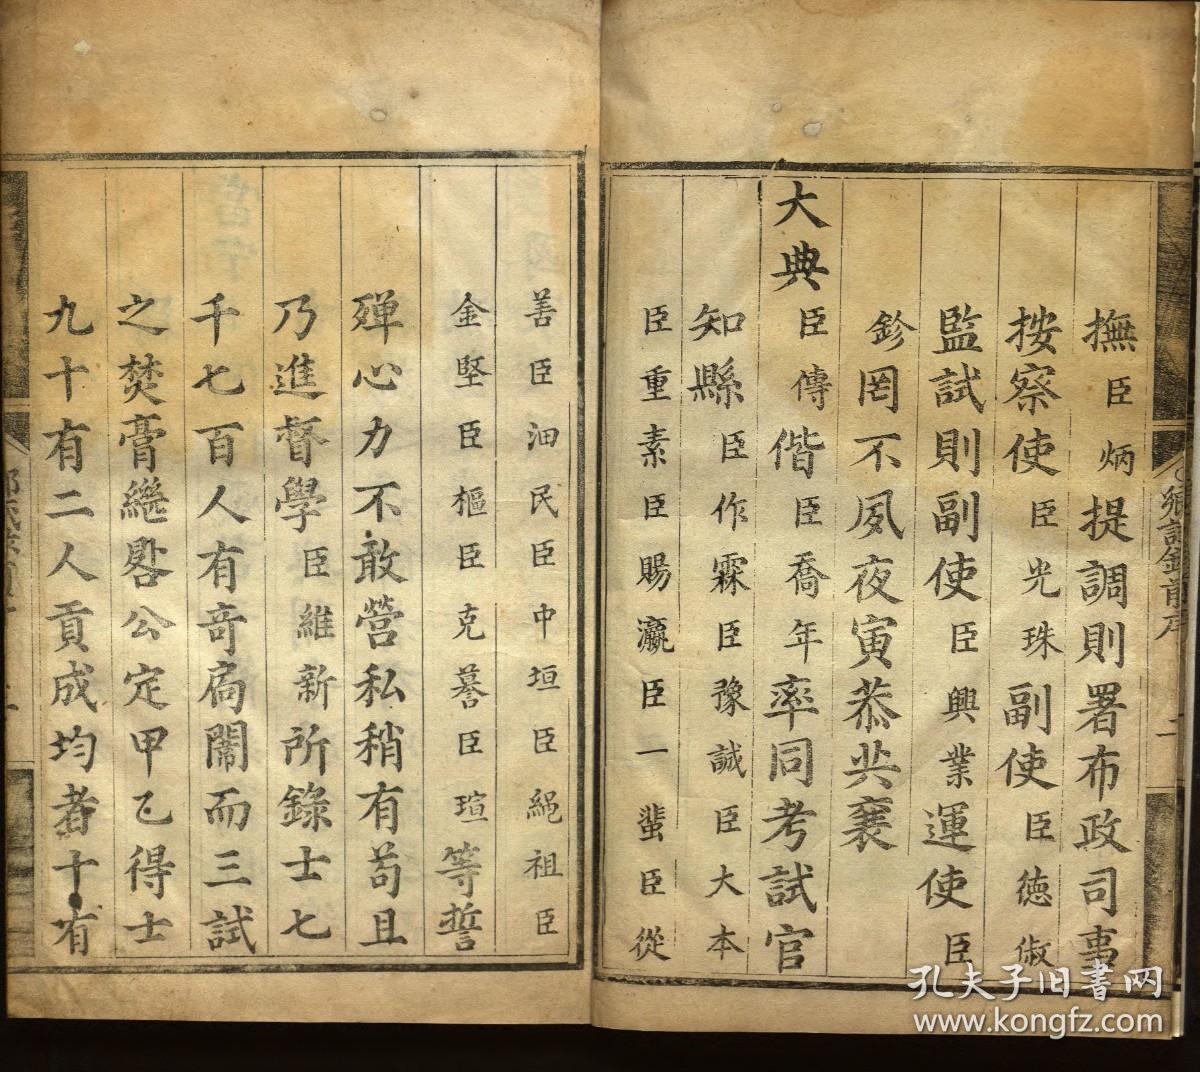 撫臣炳提調則署布政司事
按察使臣光珠副使臣德俶
監試則副使臣興業運使臣
鉁罔不夙夜寅恭共襄
大典臣傳偕臣喬年率同考試官
知縣臣作霖臣豫誠臣大本
臣重素臣賜瀛臣一蜚臣從
善臣沺民臣中垣臣繩祖臣
金堅臣樞臣克謩臣瑄等誓
殫心力不敢營私稍有苟且
乃進督學臣維新所錄士七
千七百人有奇扃闈而三試
之焚膏繼晷公定甲乙得士
九十有二人貢成均者十有
鄉試錄前序
二
孔夫子旧书网
www.kongfz.com